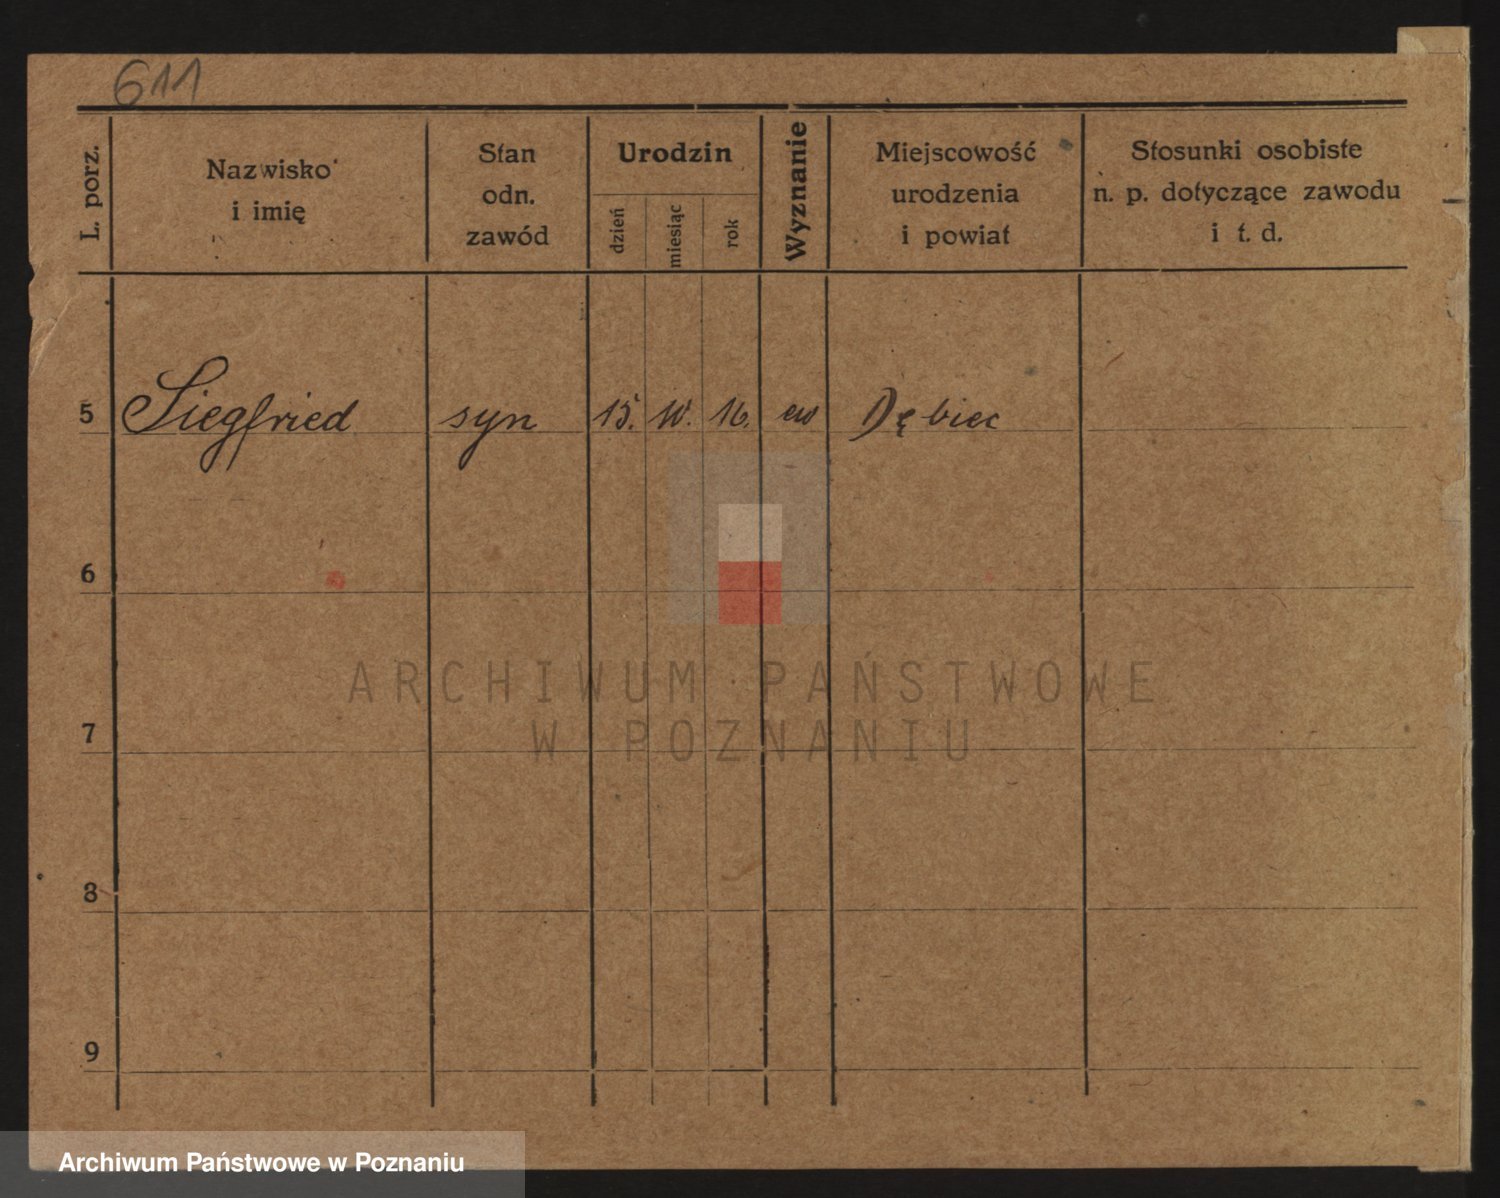 611
L. porz.
Nazwisko
i imię
Stan
odn.
zawód
Urodzin
dzień
miesiąc
rok
Wyznanie
Miejscowość
urodzenia
i powiat
Stosunki osobiste
n. p. dotyczące zawodu
i t. d.
5 Siegfried syn 15. 10. 16. ew Dębiec
6
7
8
9
ARCHIWUM PAŃSTWOWE
W POZNANIU
Archiwum Państwowe w Poznaniu